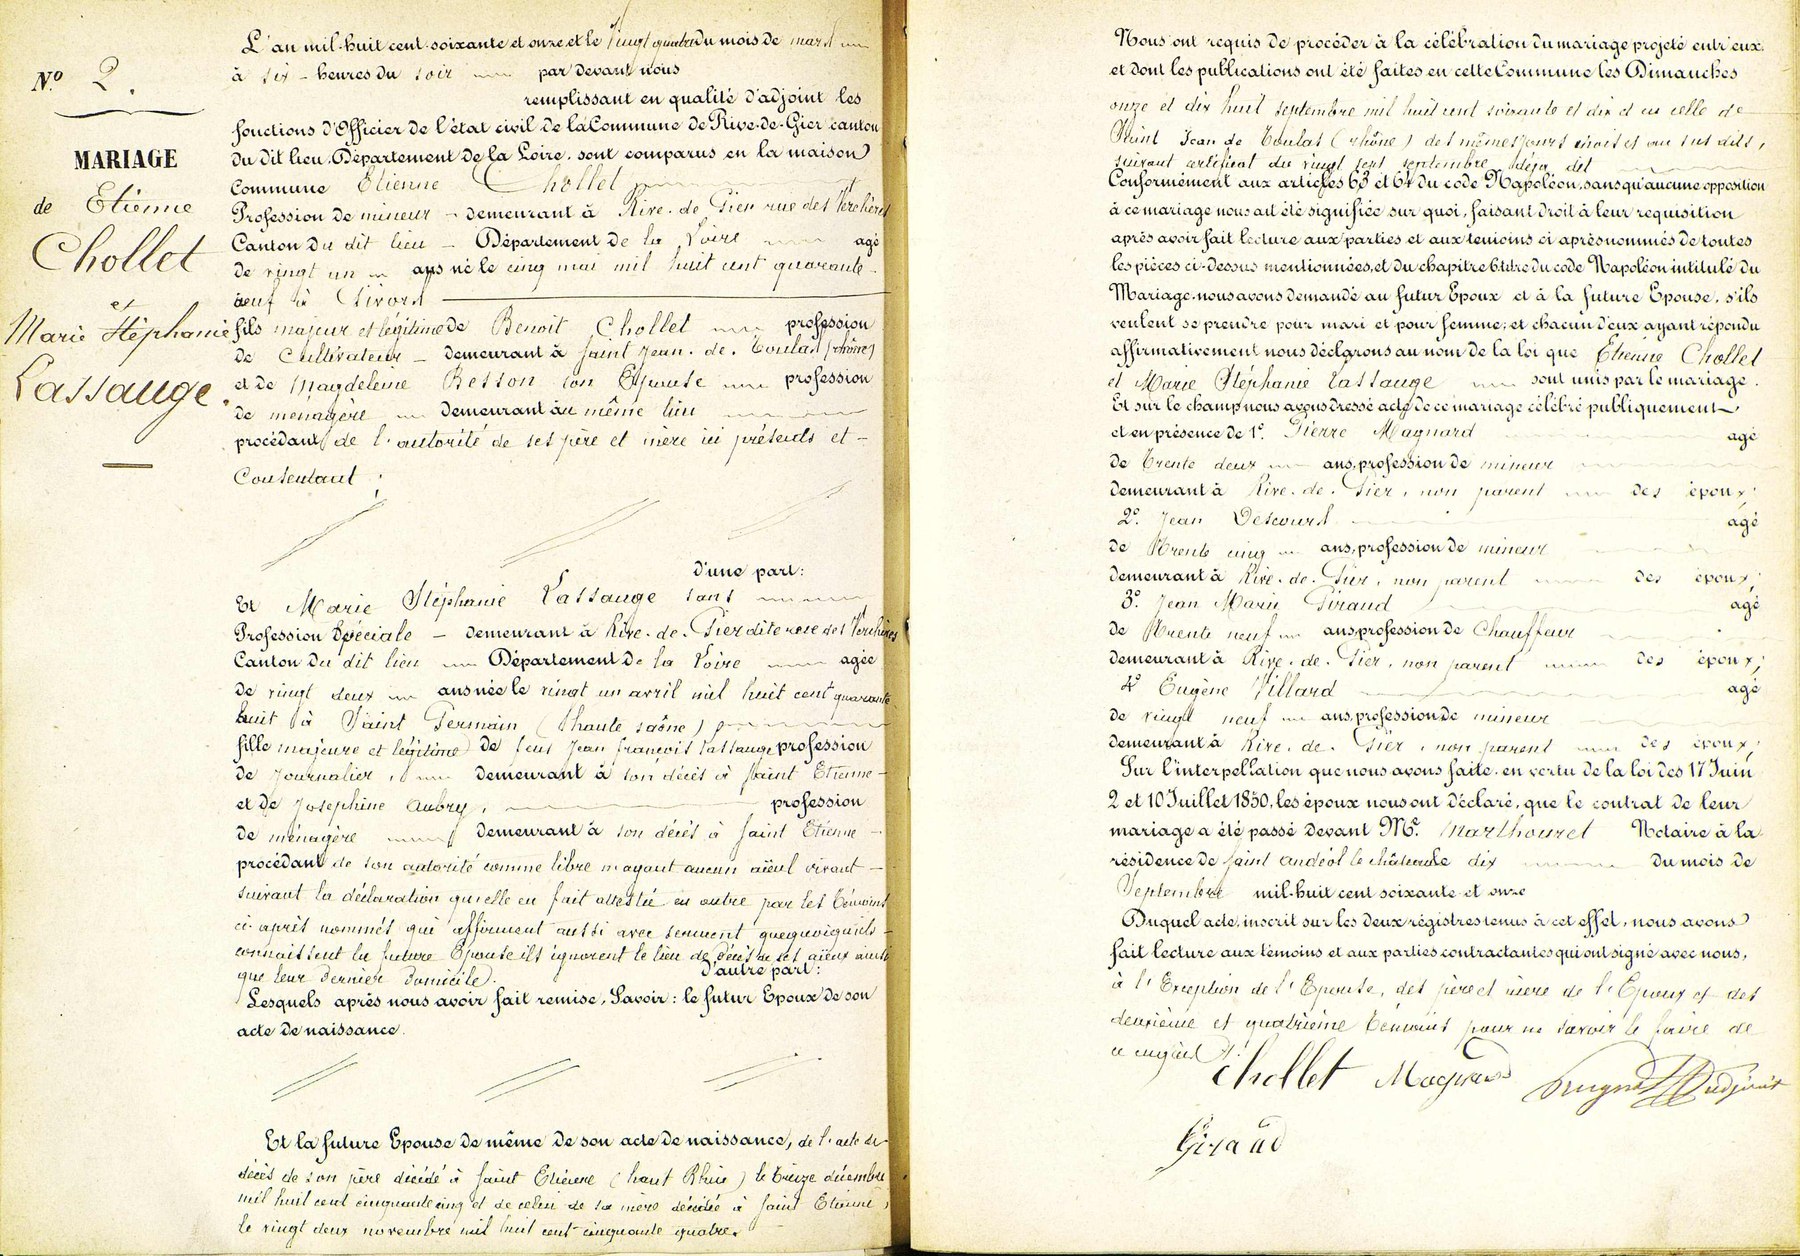 N.º 2.
MARIAGE
de Etienne
Chollet
et
Marie Stéphanie
Lassauge.
L'an mil-huit cent-soixante et onze et le vingt quatre du mois de mars
à six - heures du soir par devant nous
remplissant en qualité d'adjoint les
fonctions d'Officier de l'état civil de la Commune de Rive-de-Gier canton
du dit lieu, Département de la Loire, sont comparus en la maison
Commune Etienne Chollet
Profession de mineur - demeurant à Rive-de-Gier rue des Verchères
Canton du dit lieu - Département de la Loire agé
de vingt un ans né le cinq mai mil huit cent quarante-
neuf à Givors
fils majeur et légitime de Benoit Chollet profession
de Cultivateur - demeurant à Saint Jean-de-Toulas (Rhône)
et de Magdeleine Besson son Epouse profession
de ménagère demeurant au même lieu
procédant de l'autorité de ses père et mère ici présents et -
Consentant ;
d'une part:
Et Marie Stéphanie Lassauge sans
Profession Spéciale - demeurant à Rive-de-Gier dite rue des Verchères
Canton du dit lieu Département de la Loire agée
de vingt deux ans née le vingt un avril mil huit cent quarante
huit à Saint Germain (haute saône)
fille majeure et légitime de feus Jean françois Lassauge profession
de Journalier, demeurant à son décès à Saint Etienne -
et de Josephine Aubry, profession
de ménagère demeurant à son décès à Saint Etienne -
procédant de son autorité comme libre n'ayant aucun aïeul vivant -
suivant la déclaration qu'elle en fait attestée en outre par les témoins
ci-après nommés qui affirment aussi avec serment que quoiqu'ils -
connaissent la future Epouse ils ignorent le lieu de décès de ses aïeux ainsi
que leur dernier domicile.
d'autre part:
Lesquels après nous avoir fait remise, Savoir: le futur Epoux de son
acte de naissance.
Et la future Epouse de même de son acte de naissance, de l'acte de
décès de son père décédé à Saint Etienne (haut Rhin) le treize décembre
mil huit cent cinquante cinq et de celui de sa mère décédée à Saint Etienne,
le vingt deux novembre mil huit cent cinquante quatre.
Nous ont requis de procéder à la célébration du mariage projeté entr'eux,
et dont les publications ont été faites en cette Commune les Dimanches
onze et dix huit septembre mil huit cent soixante et dix et en celle de
Saint Jean de Toulas (rhône) des mêmes jours mois et an sus dits,
suivant certificat du vingt sept septembre
Conformément aux articles 63 et 64 du code Napoléon, sans qu'aucune opposition
à ce mariage nous ait été signifiée sur quoi, faisant droit à leur requisition
après avoir fait lecture aux parties et aux temoins ci après nommés de toutes
les pièces ci-dessus mentionnées, et du chapitre 6 titre du code Napoléon intitulé du
Mariage, nous avons demandé au futur Epoux et à la future Epouse, s'ils
veulent se prendre pour mari et pour femme; et chacun d'eux ayant répondu
affirmativement nous déclarons au nom de la loi que Etienne Chollet
et Marie Stéphanie Lassauge sont unis par le mariage.
Et sur le champ nous avons dressé acte de ce mariage célébré publiquement
et en présence de 1º. Pierre Magnard agé
de trente deux ans, profession de mineur
demeurant à Rive-de-Gier, non parent des époux;
2º. Jean Descours agé
de trente cinq ans, profession de mineur
demeurant à Rive-de-Gier, non parent des époux;
3º. Jean Marie Giraud agé
de trente neuf ans, profession de Chauffeur
demeurant à Rive-de-Gier, non parent des époux;
4º Eugène Villard agé
de vingt neuf ans, profession de mineur
demeurant à Rive-de-Gier, non parent des époux;
Sur l'interpellation que nous avons faite, en vertu de la loi des 17 Juin
2 et 10 Juillet 1850, les époux nous ont déclaré, que le contrat de leur
mariage a été passé devant Mº. Marthouret Notaire à la
résidence de Saint andéol le château le dix du mois de
Septembre mil-huit cent soixante et onze
Duquel acte, inscrit sur les deux régistres tenus à cet effet, nous avons
fait lecture aux témoins et aux parties contractantes qui ont signé avec nous,
à l'Exception de l'Epouse, des père et mère de l'Epoux et des
deuxième et quatrième témoins pour ne savoir le faire de
ce enquis
Chollet Magnard adjoint
Giraud